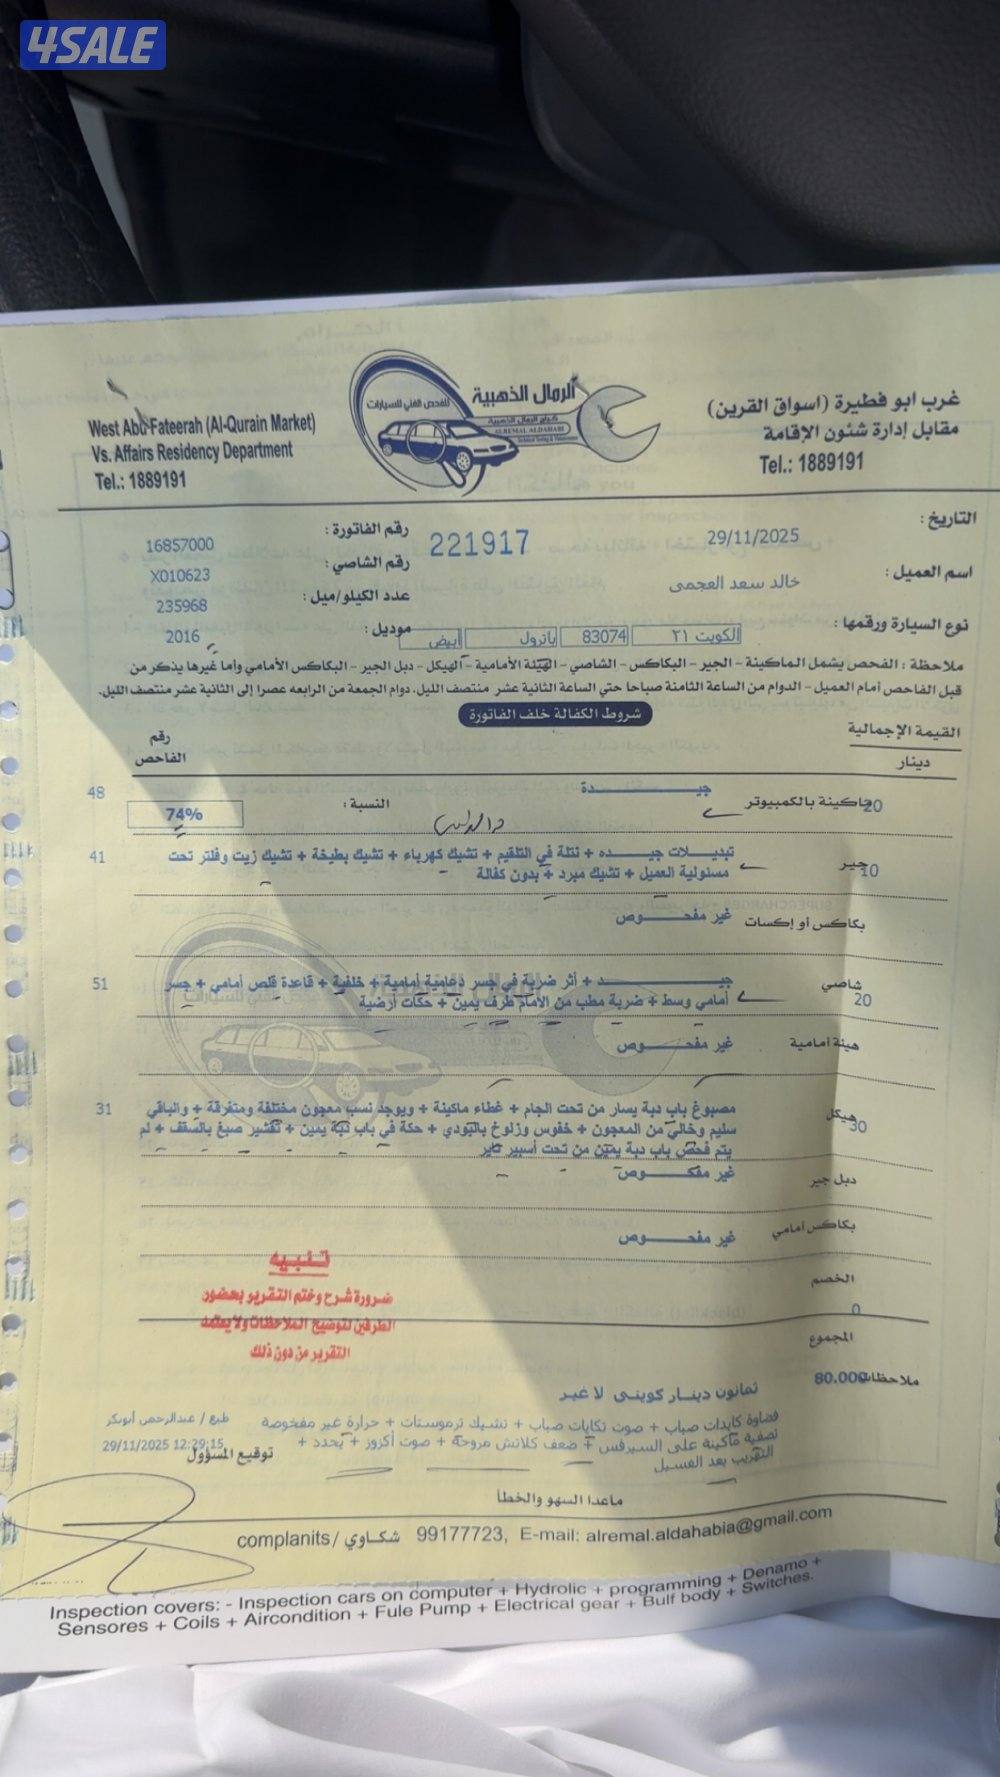 4SALE
West Abu Fateerah (Al-Qurain Market)
Vs. Affairs Residency Department
Tel.: 1889191
الرمال الذهبية
للفحص الفني للسيارات
كراج الرمال الذهبية
ALREMAL ALDAHABI
غرب ابو فطيرة (اسواق القرين)
مقابل إدارة شئون الإقامة
Tel.: 1889191
التاريخ : 29/11/2025
221917
رقم الفاتورة : 16857000
اسم العميل : خالد سعد العجمى
رقم الشاصي : X010623
عدد الكيلو/ميل : 235968
نوع السيارة ورقمها : الكويت ٢١ 83074 باترول أبيض
موديل : 2016
ملاحظة : الفحص يشمل الماكينة - الجير - البكاكس - الشاصي - الهيئة الأمامية - الهيكل - دبل الجير - البكاكس الأمامي وأما غيرها يذكر من
قبل الفاحص أمام العميل - الدوام من الساعة الثامنة صباحا حتي الساعة الثانية عشر منتصف الليل، دوام الجمعة من الرابعه عصرا إلى الثانية عشر منتصف الليل.
شروط الكفالة خلف الفاتورة
القيمة الإجمالية
دينار
رقم
الفاحص
ماكينة بالكمبيوتر 20 جيـــــدة 48
النسبة : 74%
جير 10 تبديـلات جيـــده + نتلة في التلقيم + تشيك كهرباء + تشيك بطيخة + تشيك زيت وفلتر تحت 41
مسئولية العميل + تشيك مبرد + بدون كفالة
بكاكس أو إكسات غير مفحـــوص
شاصي 20 جيـــــد + أثر ضربة في جسر دعامية أمامية + خلفية + قاعدة قلص أمامي + جسر 51
أمامي وسط + ضربة مطب من الأمام طرف يمين + حكات أرضية
هيئة أمامية غير مفحـــوص
هيكل 30 مصبوغ باب دبة يسار من تحت الجام + غطاء ماكينة + ويوجد نسب معجون مختلفة ومتفرقة + والباقي 31
سليم وخالي من المعجون + خفوس وزلوخ بالبودي + حكة في باب دبة يمين + تقشير صبغ بالسقف + لم
يتم فحص باب دبة يمين من تحت أسبير تاير
دبل جير غير مفكـــوص
بكاكس امامي غير مفحـــوص
الخصم 0
المجموع
80.000
تنبيه
ضرورة شرح وختم التقرير بحضور
الطرفين لتوضيح الملاحظات ولا يعتمد
التقرير من دون ذلك
ثمانون دينـار كويتى لا غير
ملاحظات
فضاوة كايدات صباب + صوت تكايات صباب + تشيك ترموستات + حرارة غير مفحوصة
تصفية ماكينة على السيرفس + ضعف كلاتش مروحة + صوت أكزوز + يحدد +
التهريب بعد الغسيل
طبع / عبدالرحمن أبوبكر
29/11/2025 12:29:15
توقيع المسؤول
ماعدا السهو والخطأ
complanits/ شكاوي 99177723, E-mail: alremal.aldahabia@gmail.com
Inspection covers: - Inspection cars on computer + Hydrolic + programming + Denamo +
Sensores + Coils + Aircondition + Fule Pump + Electrical gear + Bulf body + Switches.